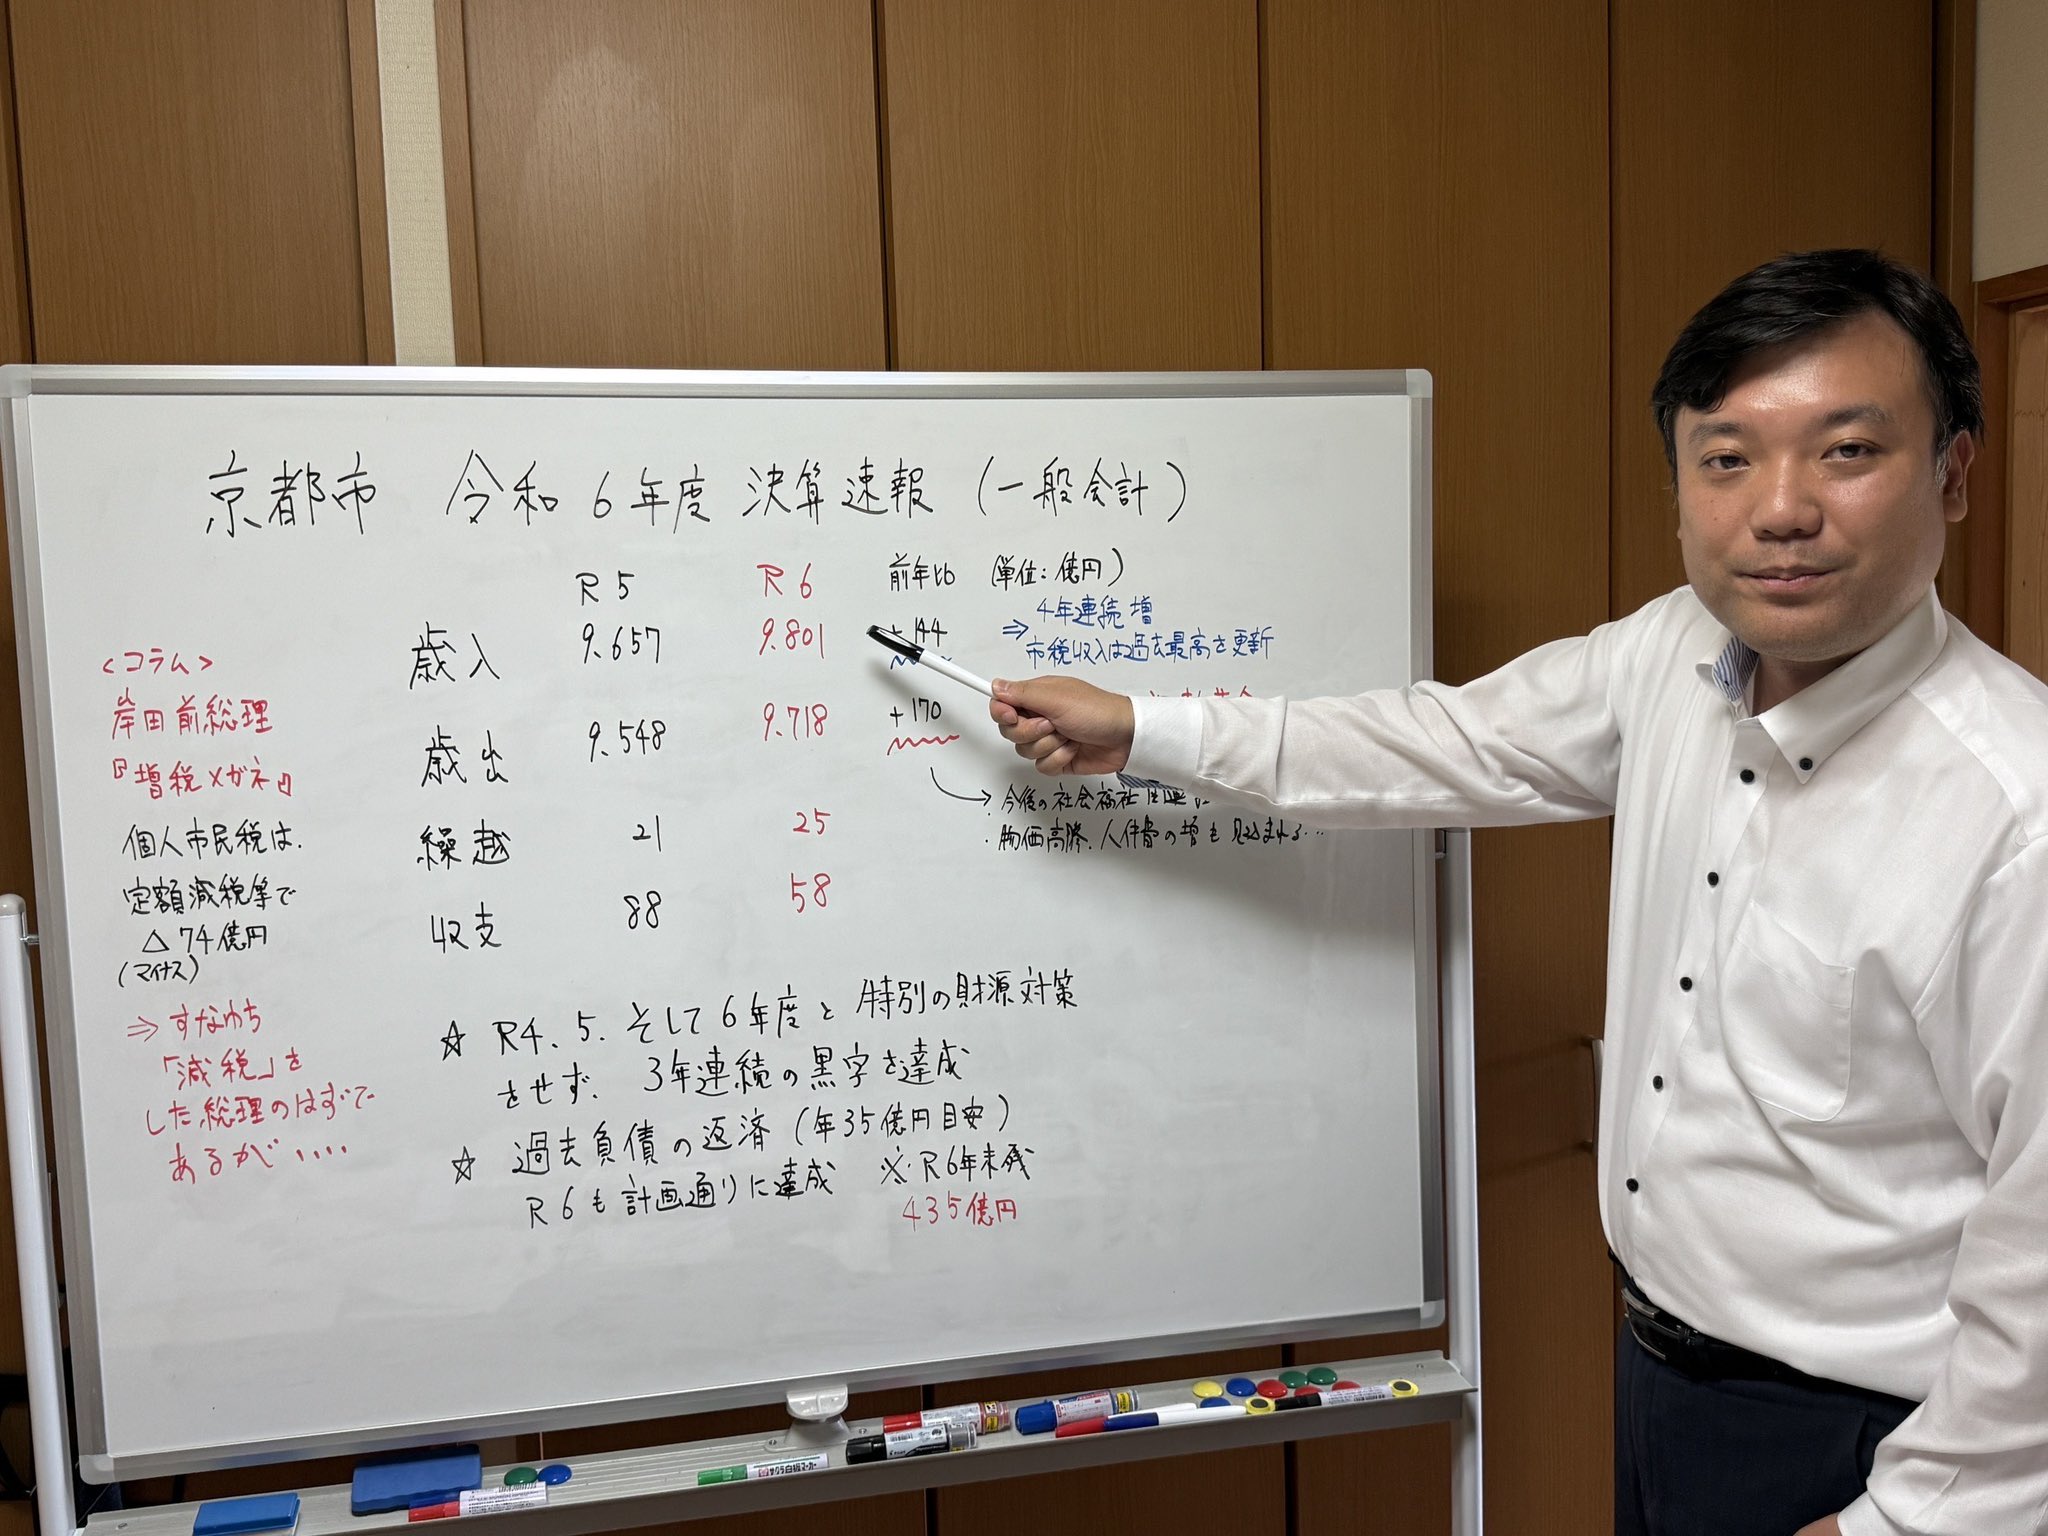 京都市 令和6年度 決算速報 (一般会計)
R5 R6 前年比 (単位:億円)
歳入 9.657 9.801 +144 ⇒ 4年連続増
市税収入は過去最高を更新
歳出 9.548 9.718 +170
→ 今後の社会福祉
・物価高騰、人件費の増も見込まれる…
繰越 21 25
収支 88 58
☆ R4、5、そして6年度と特別の財源対策
をせず、3年連続の黒字を達成
☆ 過去負債の返済(年35億円目安)
R6も計画通りに達成 ※R6年末残
435億円
<コラム>
岸田前総理
『増税メガネ』
個人市民税は、
定額減税等で
△74億円
(マイナス)
⇒ すなわち
「減税」を
した総理のはずで
あるが‥‥
サクラ白板マーカー